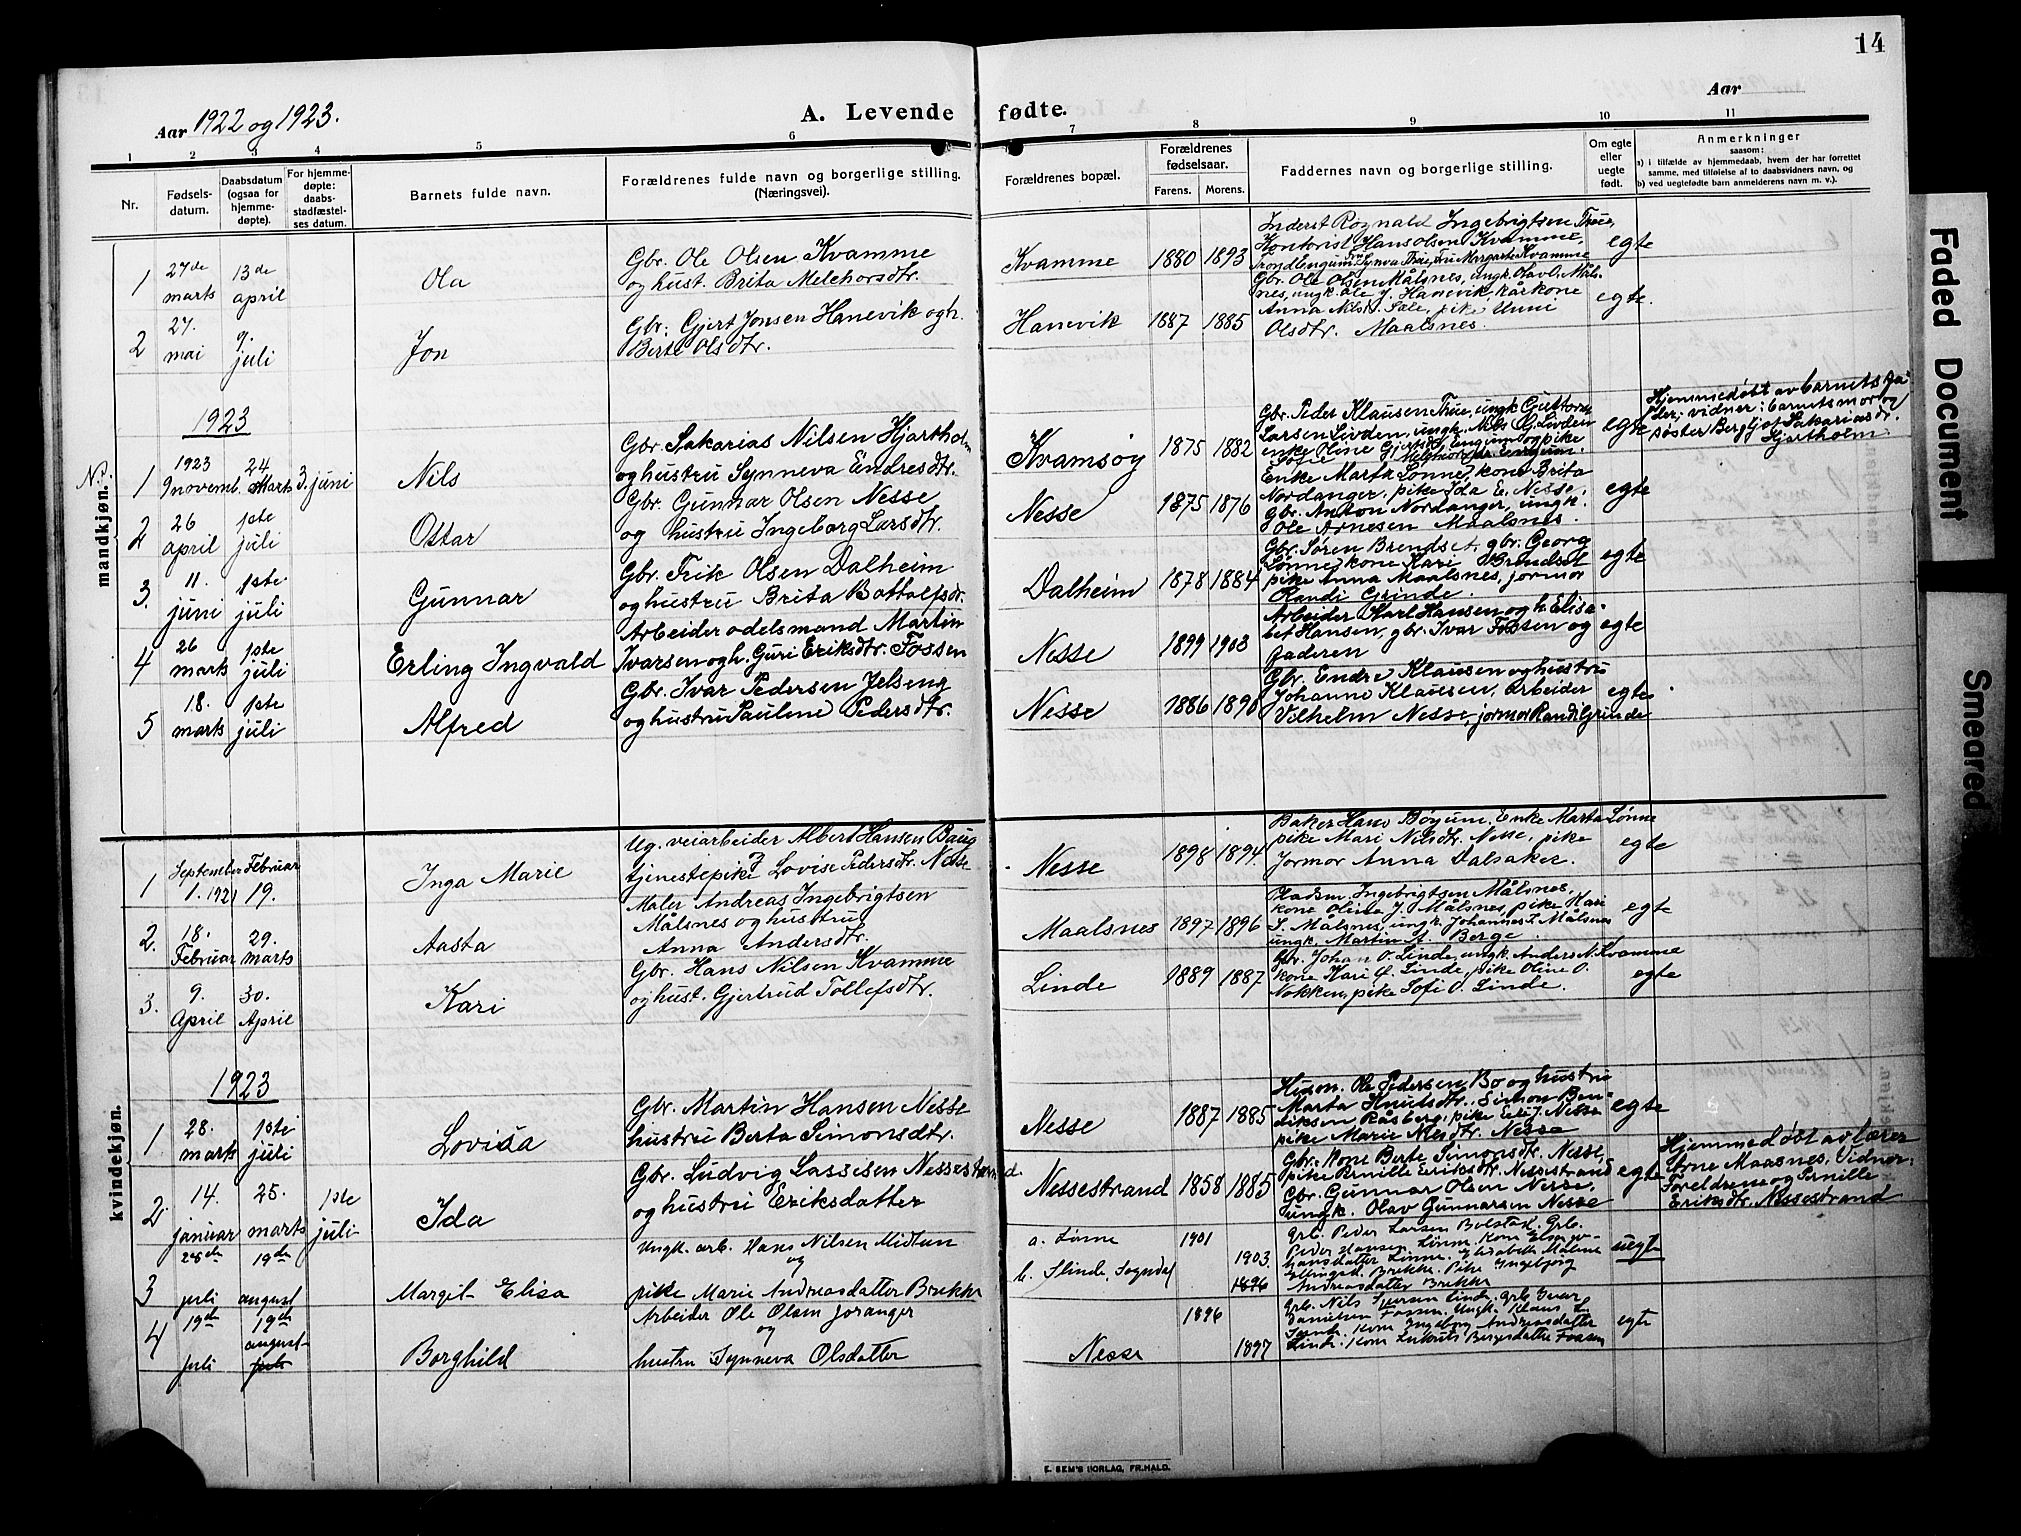 14
Aar 1922 og 1923.
A. Levende fødte.
Aar
1 2 3 4 5 6 7 8 9 10 11
Nr.
Fødsels-
datum.
Daabsdatum
(ogsaa for
hjemme-
døpte).
For hjemme-
døpte:
daabs-
stadfæstel-
ses datum.
Barnets fulde navn.
Forældrenes fulde navn og borgerlige stilling.
(Næringsvei).
Forældrenes bopæl.
Forældrenes
fødselsaar.
Farens. Morens.
Faddernes navn og borgerlige stilling.
Om egte
eller
uegte
født.
Anmerkninger
saasom:
a) i tilfælde av hjemmedaab, hvem der har forrettet
samme, med tilføielse af to daabsvidners navn, og
b) ved uegtefødte barn anmelderens navn m. v.).
mandkjøn.
1 27de marts 13de april Ola
Gbr. Ole Olsen Kvamme
og hust. Brita Melchorsdtr.
Kvamme 1880 1893
Inderst Røgnald Ingebrigtsen Thue,
Kontorist Hans Olsen Kvamme,
egte
2 27. mai 9. juli Jon
Gbr. Gjert Jonsen Hanevik og h.
Berte Olsdtr.
Hanevik 1887 1885
Gbr. Ole Olsen Målsnes, ungk. Olav O. Måls-
nes, ungk. Ole J. Hanevik, kårkone
Anna Nilsd. Sæle, pike Unni
Olsdtr. Maalsnes.
egte.
1923
No. 1 1923 9 novemb. 24 Marts 3. juni Nils
Gbr. Sakarias Nilsen Hjartholm
og hustru Synneva Endresdtr.
Kvamsøy 1875 1882
Gbr. Peder Klausen Thue, ungk. Guttorm
Larsen Livden, ungk. Nils G. Livden
enke Oline Gjertsd. Engum og pike
Sofie Melchorsdtr. Engum.
egte
Hjemmedøbt av barnets fa-
der; vidner: barnets mor og
søster Bergljot Sakariasdr.
Hjartholm.
2 26 april 1ste juli Ottar
Gbr. Gunnar Olsen Nesse
og hustru Ingeborg Larsdtr.
Nesse 1875 1876
Enke Marta Lønne, kone Brita
Nordanger, pike Ida E. Nesse,
gbr. Anton Nordanger, ungk.
Ole Arnesen Maalsnes.
egte
3. 11. juni 1ste juli Gunnar
Gbr. Erik Olsen Dalheim
og hustru Brita Bottolfsdr.
Dalheim 1878 1884
Gbr. Søren Brendset, gbr. Georg
Lønne, kone Kari Brendset
pike Anna Maalsnes, jormor
Randi Grinde.
egte
4 26 marts 1ste juli Erling Ingvald
Arbeider odelsmand Martin
Ivarsen og h. Guri Eriksdtr. Fossen
Nesse 1899 1903
Arbeider Karl Hansen og h. Elisa-
bet Hansen, gbr. Ivar Fossen og
faderen
egte
5 18. marts 1ste juli Alfred
Gbr. Ivar Pedersen Jelseng
og hustru Pauline Pedersdtr.
Nesse 1886 1890
Gbr. Endre Klausen og hustru
Johanne Klausen, arbeider
Vilhelm Nesse, jormor Randi Grinde
egte
kvindekjøn.
1 September 1. 1921 Februar 19. Inga Marie
Ug. veiarbeider Albert Hansen Baug
tjenestepike Lovise Pedersdtr. Nesse
Nesse 1898 1894
Baker Hans Bøyum, Enke Marta Lønne
pike Mari Nilsdtr. Nesse, pike
Jormor Anna Dalsaker.
egte
2. 18. Februar 29. marts Aasta
Maler Andreas Ingebrigtsen
Målsnes og hustru
Anna Andersdtr.
Maalsnes 1897 1896
Ingebrigtsen Målsnes,
kone Olina J. Målsnes, pike Kari
S. Målsnes, ungk. Johannes I. Målsnes
ungk. Martin A. Berge.
egte
3. 9. April 30. April Kari
Gbr. Hans Nilsen Kvamme
og hust. Gjertrud Tollefsdtr.
Linde 1889 1887
Gbr. Johan O. Linde, ungk. Anders N. Kvamme
kone Kari O. Linde, pike Oline O.
Nokken, pike Sofi O. Linde.
egte
1923
1 28. mark 1ste juli Lovisa
Gbr. Martin Hansen Nesse
hustru Berta Simonsdtr.
Nesse 1887 1885
Husm. Ole Pedersen Bø og hustru
Marta Knutsdtr., Simon Ben-
diksen Råsberg, pike Eli J. Nesse
pike Marie Nilsdtr. Nesse
egte
2 14. januar 25. marts 1ste juli Ida
Gbr. Ludvig Lassesen Nessestrand.
og hustru Eriksdatter
Nessestrand 1858 1885
Gbr. Kone Berte Simonsdtr. Nesse,
pike Pernille Eriksdtr. Nessestrand
Gbr. Gunnar Olsen Nesse,
ungk. Olav Gunnarsen Nesse
egte
Hjemmedøbt av lærer
Arne Maalsnes. Vidner:
Foreldrene og Pernille
Eriksdtr. Nessestrand
3 28de juli 19de august Margit Elisa
Ungk. arb. Hans Nilsen Midtun
og
pike Marie Andreasdatter Brekke
a. Lønne 1901
b. Slinde, Sogndal 1903 1896
Grb. Peder Larsen Bolstad, Grb.
Peder Hansen Lønne, Kone
Hansdatter Lønne, Elisabeth Målsnes
Ellingsd. Brekke. Pike Ingebjørg
Andreasdatter Brekke
uegte
4 19de juli 19de august juli Borghild
Arbeider Ole Olsen Joranger
og
hustru Synneva Olsdatter
Nesse 1896 1897
Grb. Nils Iversen Linde. Grb. Ivar
Danielsen Fossen. Ungk. Klaus L.
Linde. Kone Ingeborg Andreasdatter
Linde. Kone Bergesdatter Fossen
egte
E. SEM'S FORLAG, FR.HALD.
Faded Document
Smeared